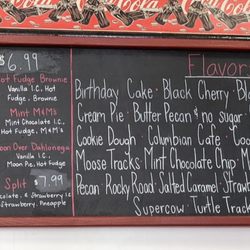 Coca-Cola
$6.99
Hot Fudge Brownie
Vanilla I.C., Hot
Fudge, Brownie
Mint M&M's
Mint Chocolate I.C.,
Hot Fudge, M&M's
Moon Over Dahlonega
Vanilla I.C.,
Moon Pie, Hot Fudge
Split $7.99
Strawberry, Pineapple
Flavor
Birthday Cake · Black Cherry ·
Cream Pie · Butter Pecan $ no sugar
Cookie Dough · Columbian Cafe ·
Moose Tracks Mint Chocolate Chip ·
Pecan · Rocky Road · Salted Caramel ·
Supercow · Turtle Track